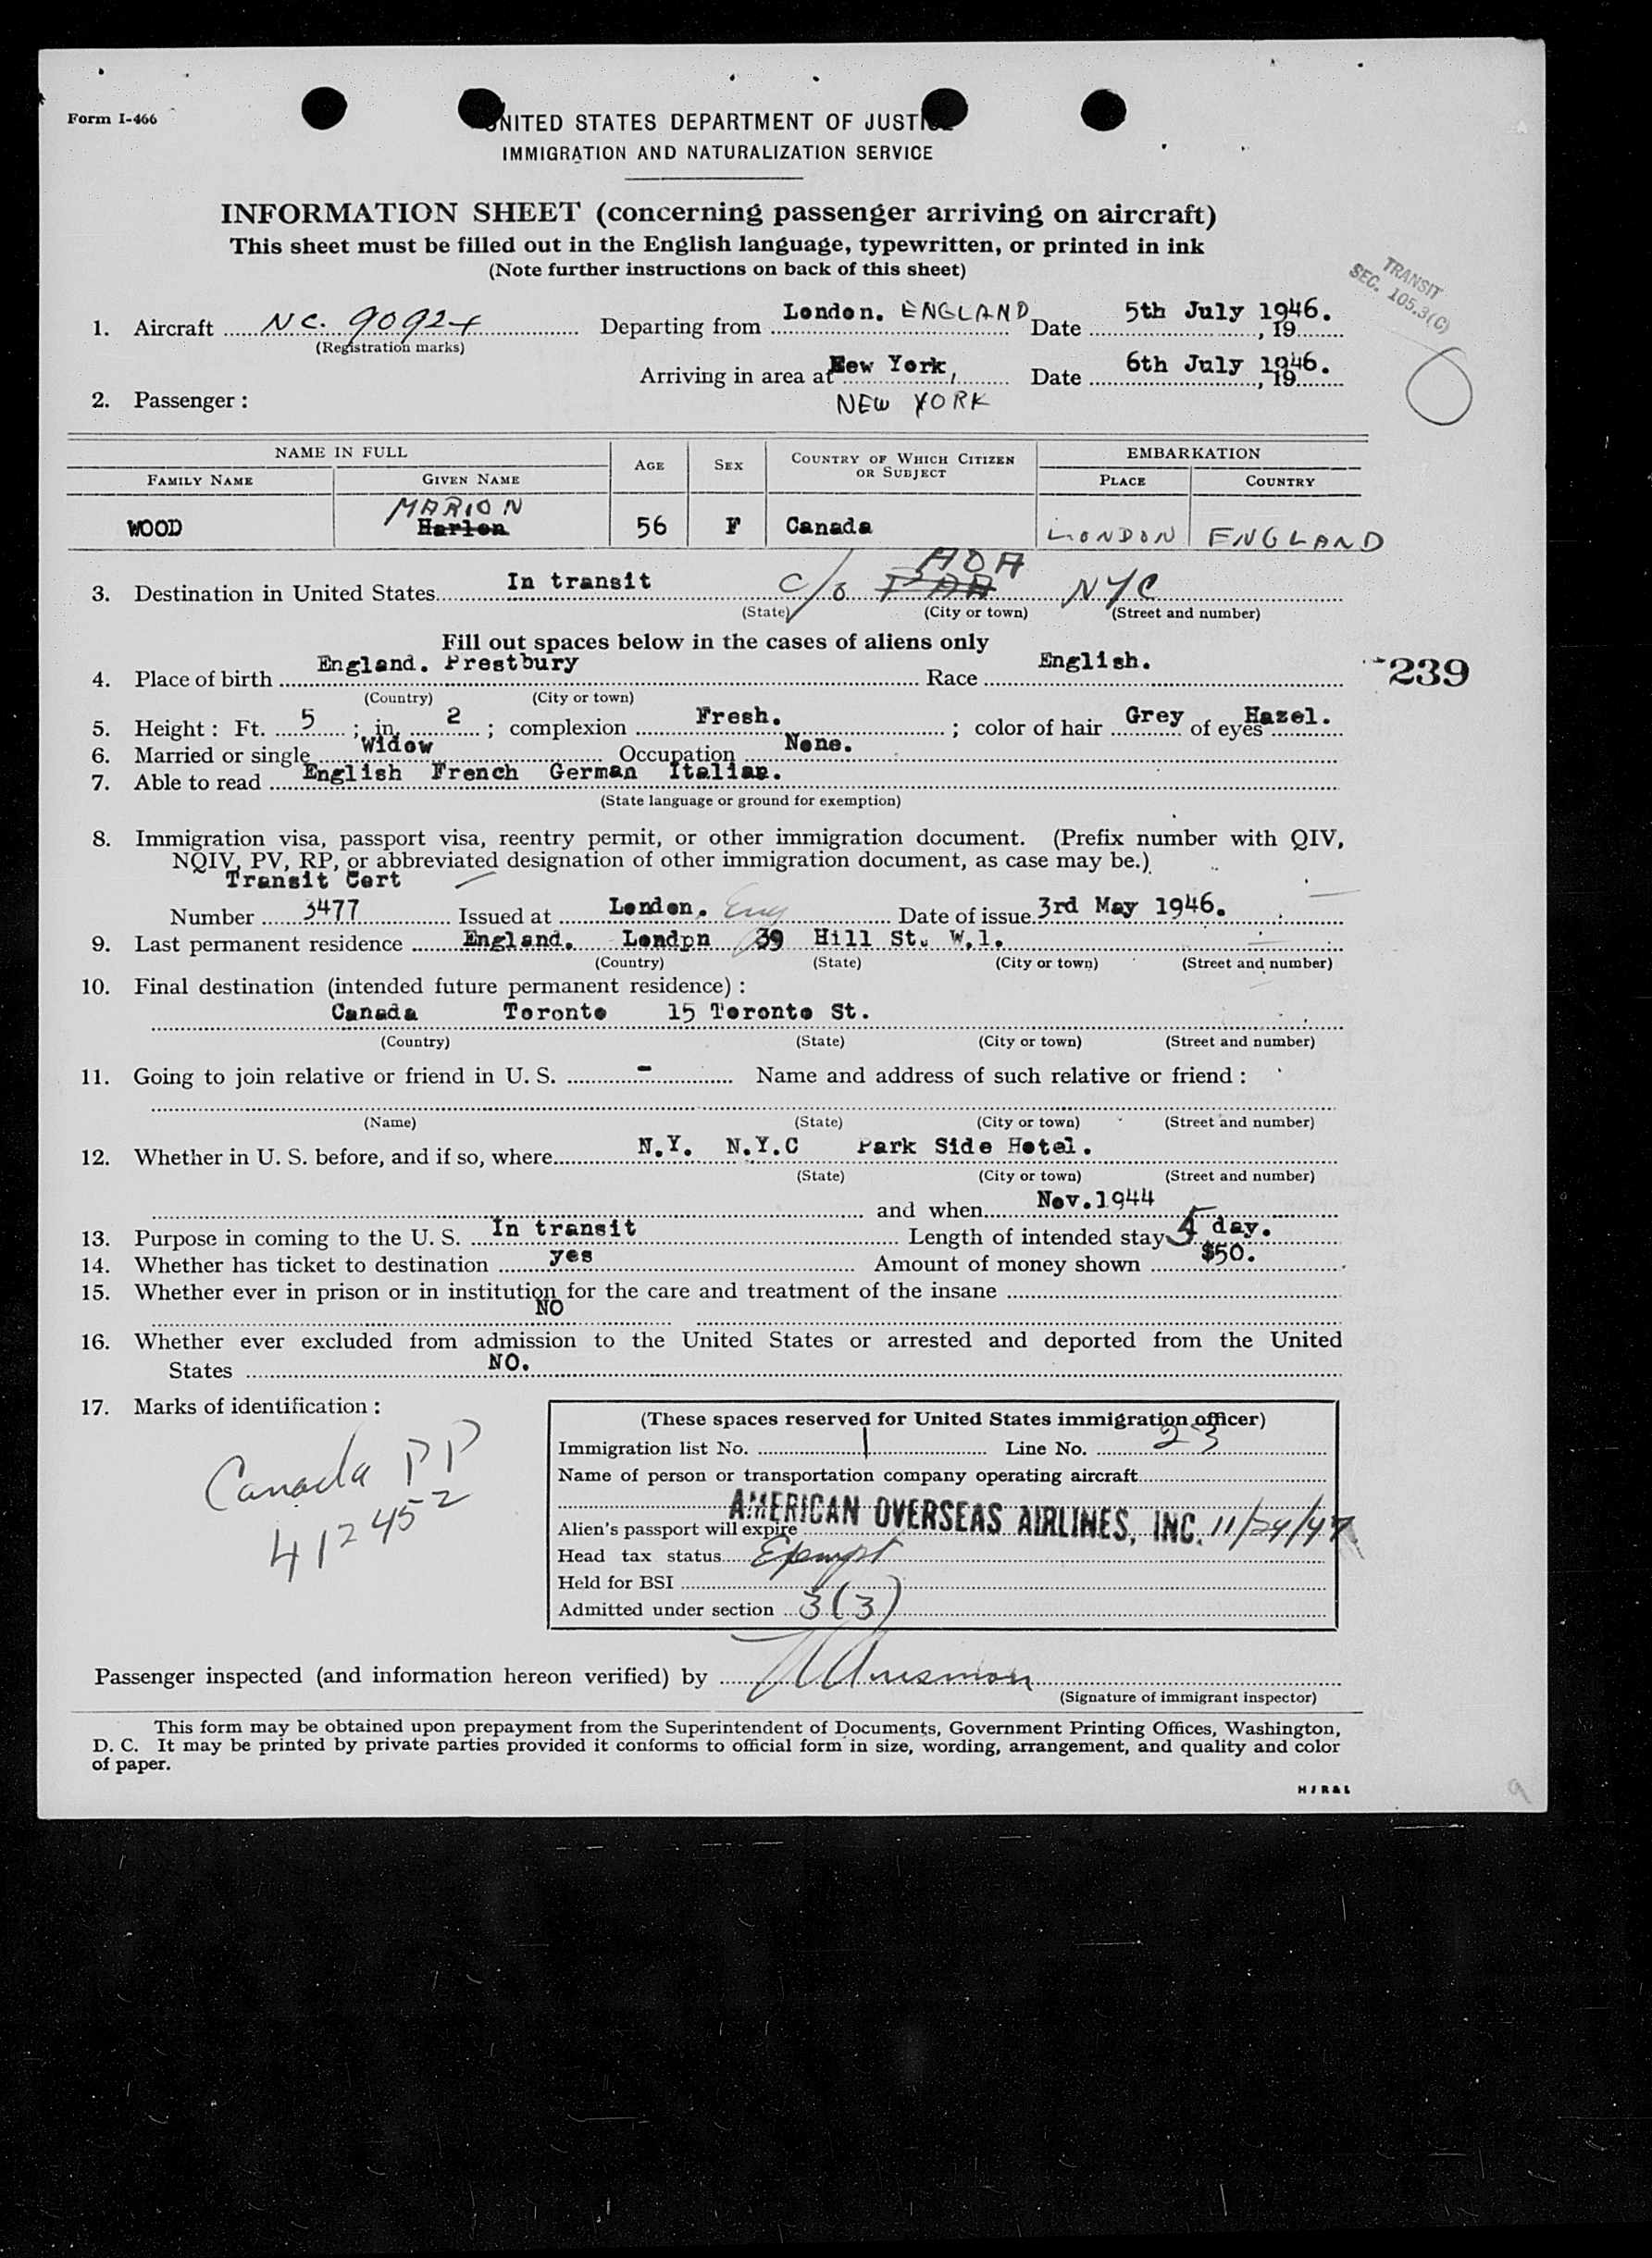 Form I-466
UNITED STATES DEPARTMENT OF JUSTICE
IMMIGRATION AND NATURALIZATION SERVICE
INFORMATION SHEET (concerning passenger arriving on aircraft)
This sheet must be filled out in the English language, typewritten, or printed in ink
(Note further instructions on back of this sheet)
TRANSIT
SEC. 105.3(C)
1. Aircraft NC. 90924 Departing from London. ENGLAND Date 5th July 1946. , 19
(Registration marks)
Arriving in area at New York, Date 6th July 1946. , 19
2. Passenger: NEW YORK
NAME IN FULL AGE SEX COUNTRY OF WHICH CITIZEN OR SUBJECT EMBARKATION
FAMILY NAME GIVEN NAME PLACE COUNTRY
MARION
WOOD Harlon 56 F Canada LONDON ENGLAND
AOA
3. Destination in United States In transit c/o PAA NYC
(State) (City or town) (Street and number)
Fill out spaces below in the cases of aliens only
4. Place of birth England. Prestbury Race English.
239
(Country) (City or town)
5. Height: Ft. 5; in. 2; complexion Fresh.; color of hair Grey of eyes Hazel.
6. Married or single Widow Occupation None.
7. Able to read English French German Italian.
(State language or ground for exemption)
8. Immigration visa, passport visa, reentry permit, or other immigration document. (Prefix number with QIV,
NQIV, PV, RP, or abbreviated designation of other immigration document, as case may be.)
Transit Cert
Number 3477 Issued at London. Eng Date of issue 3rd May 1946.
9. Last permanent residence England. London 39 Hill St. W.1.
(Country) (State) (City or town) (Street and number)
10. Final destination (intended future permanent residence):
Canada Toronto 15 Toronto St.
(Country) (State) (City or town) (Street and number)
11. Going to join relative or friend in U. S. - Name and address of such relative or friend:
(Name) (State) (City or town) (Street and number)
12. Whether in U. S. before, and if so, where N.Y. N.Y.C Park Side Hotel.
(State) (City or town) (Street and number)
and when Nov.1944
13. Purpose in coming to the U. S. In transit Length of intended stay 5 day.
14. Whether has ticket to destination yes Amount of money shown $50.
15. Whether ever in prison or in institution for the care and treatment of the insane
NO
16. Whether ever excluded from admission to the United States or arrested and deported from the United
States NO.
17. Marks of identification:
Canada PP
412452
(These spaces reserved for United States immigration officer)
Immigration list No. 1 Line No. 23
Name of person or transportation company operating aircraft
AMERICAN OVERSEAS AIRLINES, INC.
Alien's passport will expire 11/24/47
Head tax status Exempt
Held for BSI
Admitted under section 3(3)
Passenger inspected (and information hereon verified) by
(Signature of immigrant inspector)
This form may be obtained upon prepayment from the Superintendent of Documents, Government Printing Offices, Washington,
D. C. It may be printed by private parties provided it conforms to official form in size, wording, arrangement, and quality and color
of paper.
H/R&L
9